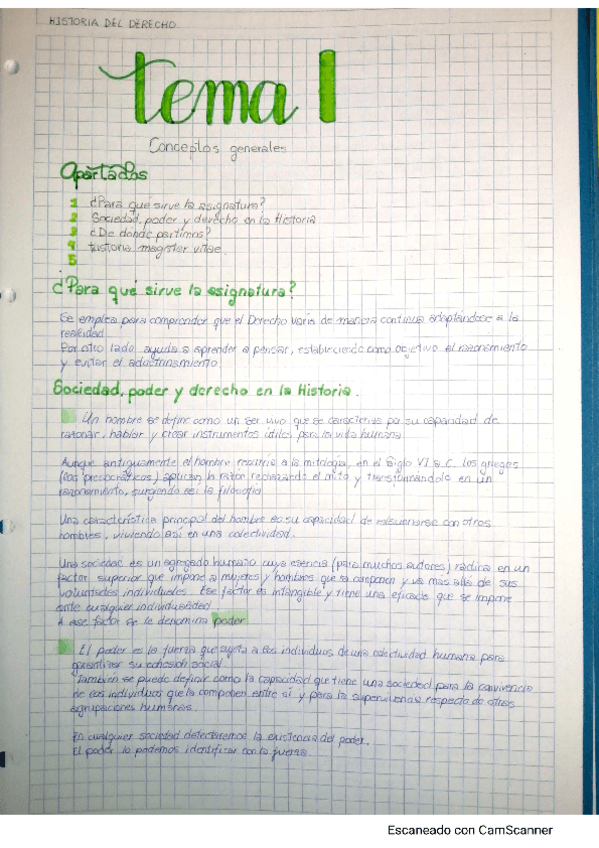 HISTORIA DEL DERECHO
tema 1
Conceptos generales
Apartados
1 ¿Para qué sirve la asignatura?
2 Sociedad, poder y derecho en la Historia
3 ¿De donde partimos?
4 Historia magister vitae.
5
¿Para qué sirve la asignatura?
Se emplea para comprender que el Derecho varía de manera continua adaptándose a la
realidad.
Por otro lado ayuda a aprender a pensar, estableciendo como objetivo el razonamiento
y evitar el adoctrinamiento.
Sociedad, poder y derecho en la Historia.
Un hombre se define como un ser vivo que se caracteriza por su capacidad de
razonar, hablar y crear instrumentos útiles para la vida humana
Aunque antiguamente el hombre recurría a la mitología, en el Siglo VI a.C. los griegos
(los presocráticos) aplican la razón rechazando el mito y transformándolo en un
razonamiento, surgiendo así la filosofía
Una característica principal del hombre es su capacidad de relacionarse con otros
hombres, viviendo así en una colectividad.
Una sociedad es un agregado humano cuya esencia (para muchos autores) radica en un
factor superior que impone a mujeres y hombres que la componen y va más allá de sus
voluntades individuales. Ese factor es intangible y tiene una eficacia que se impone
ante cualquier individualidad
A ese factor se le denomina poder
El poder es la fuerza que sujeta a los individuos de una colectividad humana para
garantizar su cohesión social.
También se puede definir como la capacidad que tiene una sociedad para la convivencia
de los individuos que la componen entre sí y para la supervivencia respecto de otras
agrupaciones humanas.
En cualquier sociedad detectaremos la existencia del poder.
El poder lo podemos identificar con la fuerza.
Escaneado con CamScanner